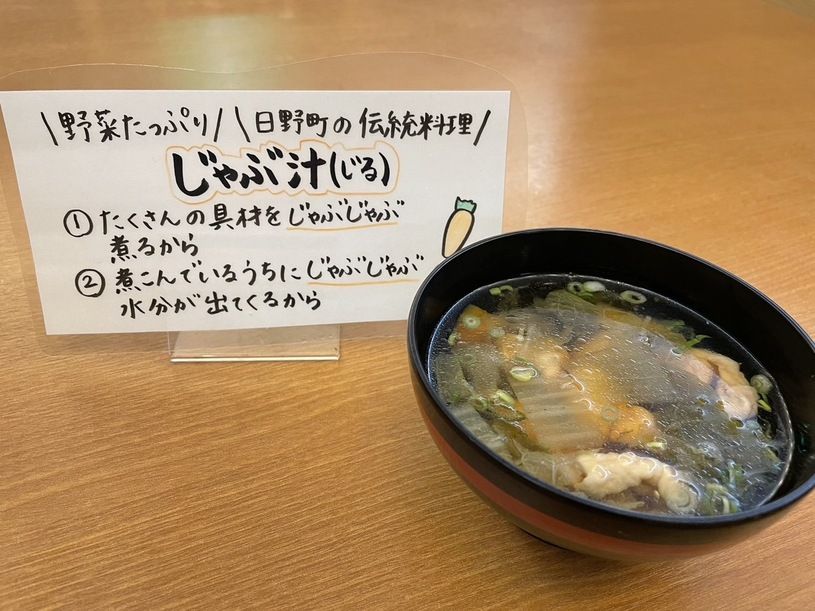 \野菜たっぷり/ \日野町の伝統料理/
じゃぶ汁(じる)
①たくさんの具材をじゃぶじゃぶ
煮るから
②煮こんでいるうちにじゃぶじゃぶ
水分が出てくるから